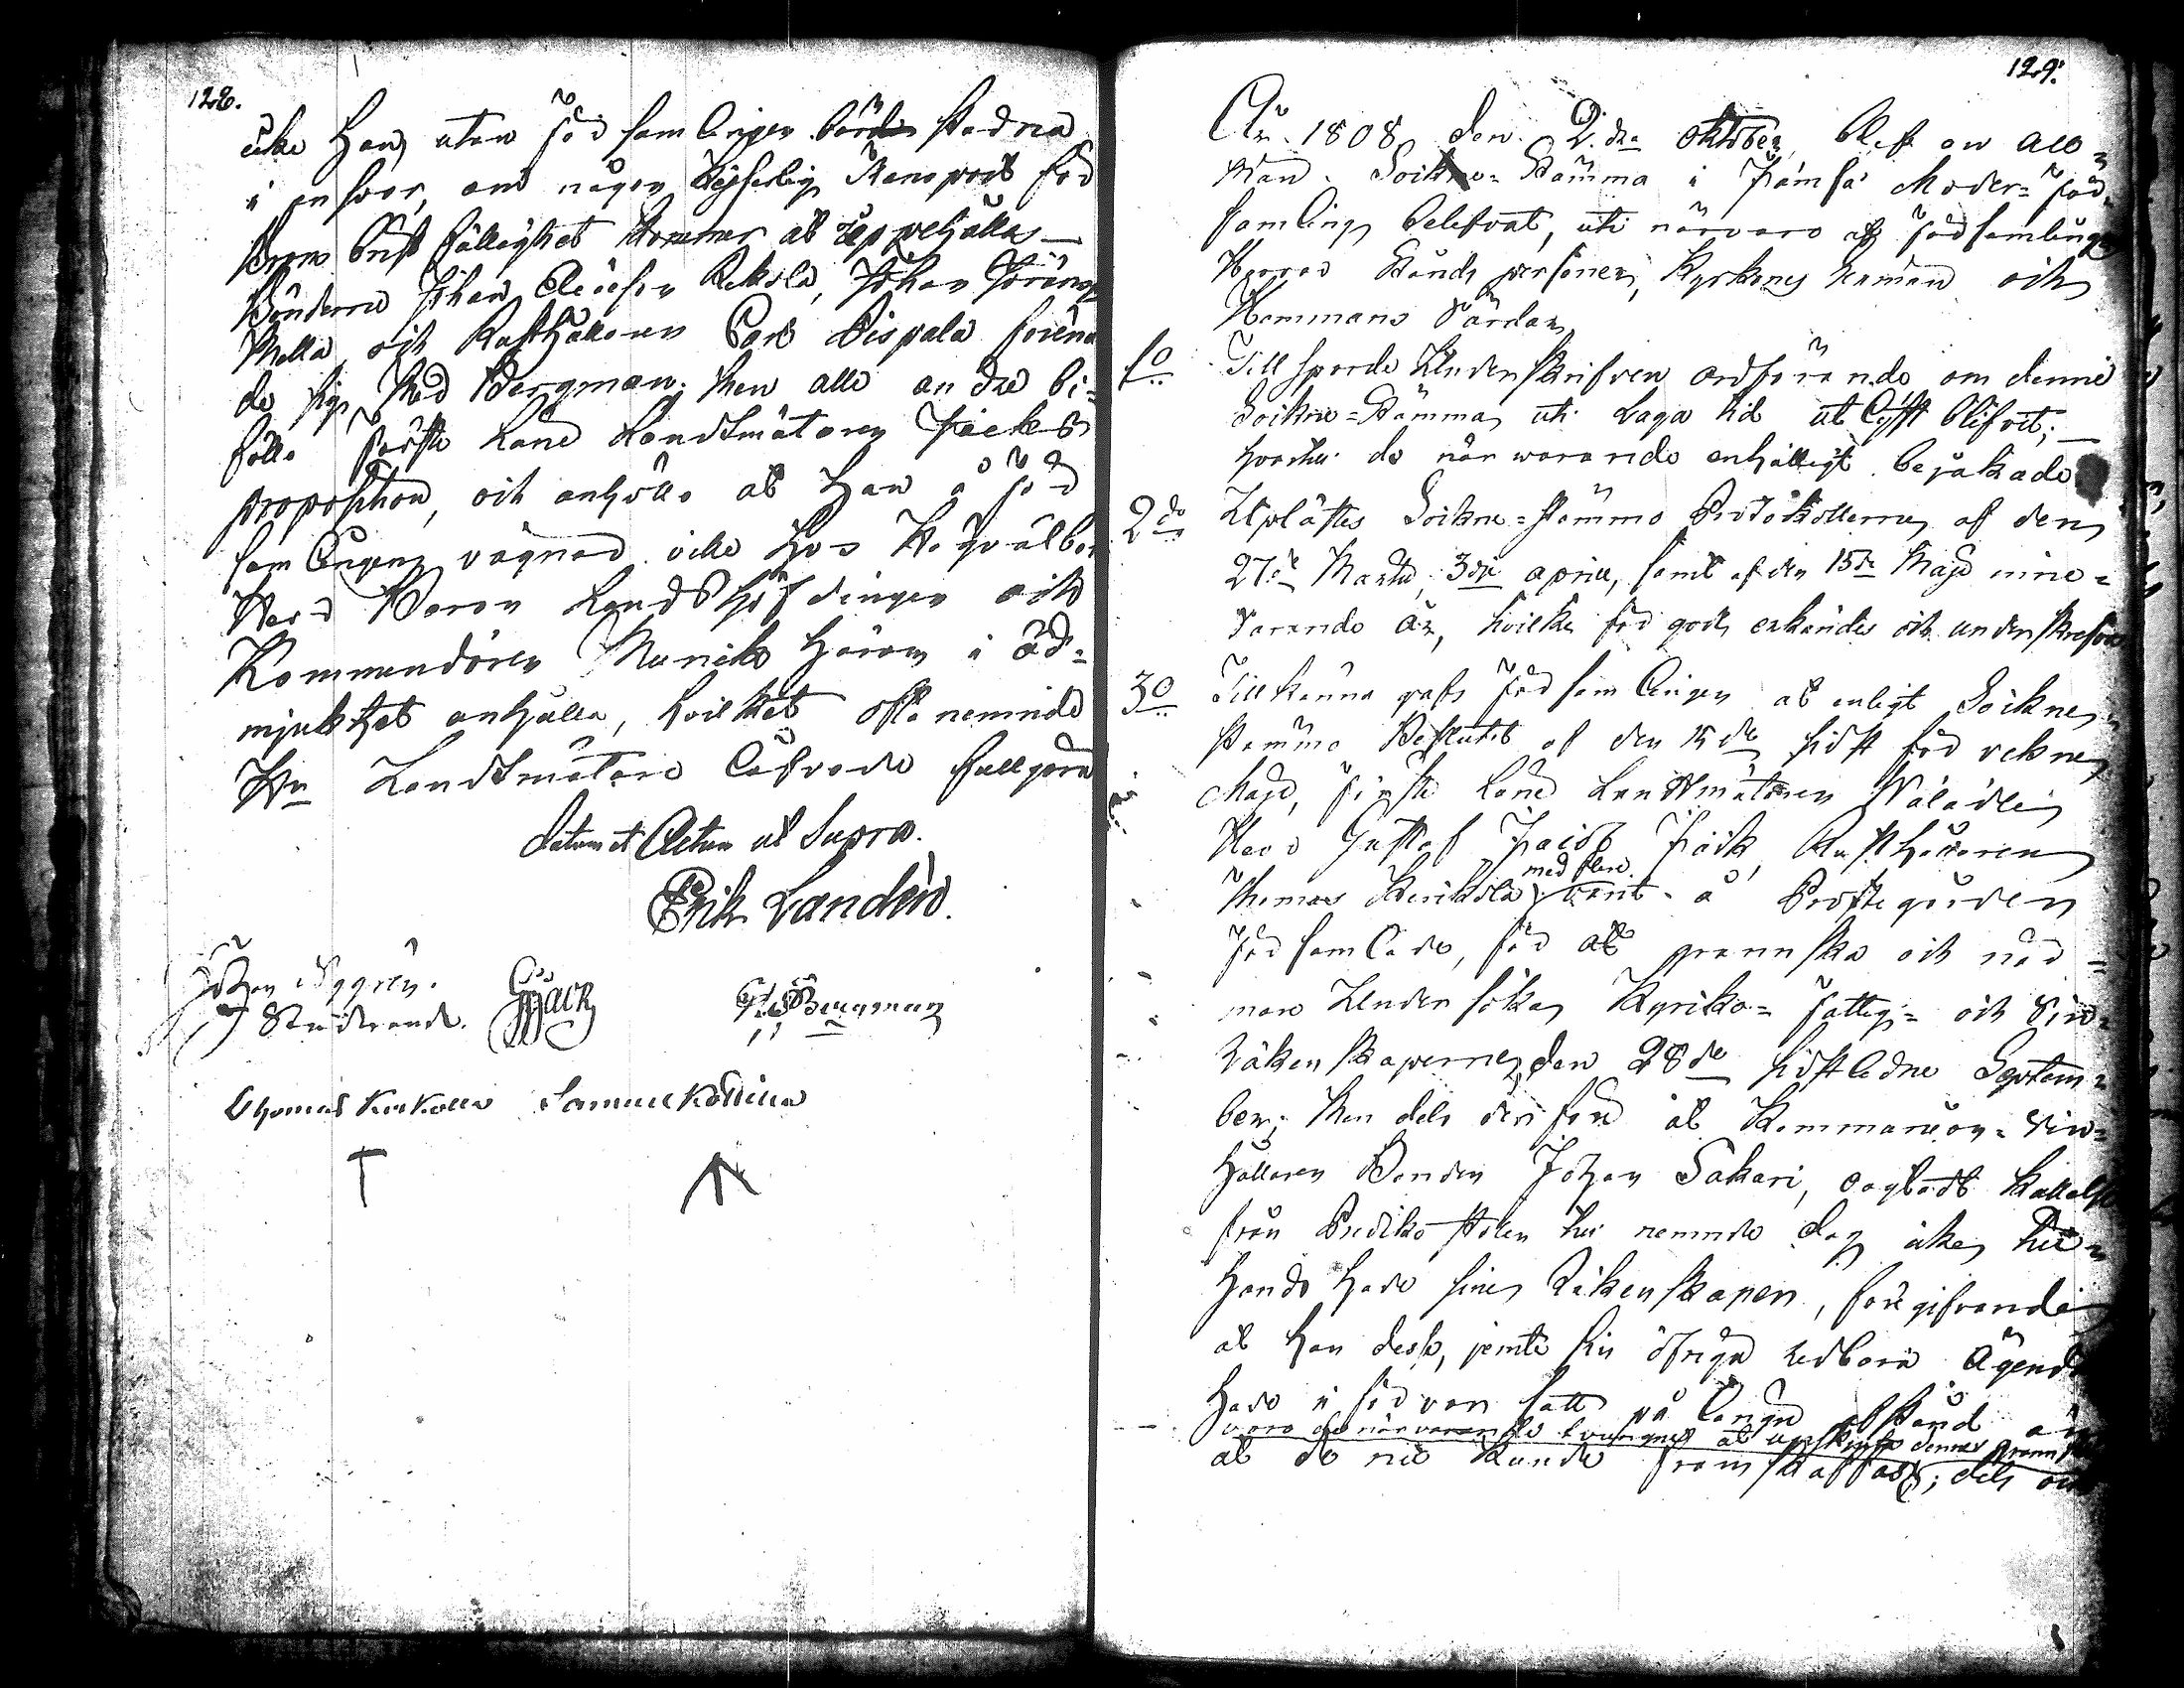 128.
icke Han, utan Församlingen borde stadna
i ansvar, om någon Kejserlig Transport för
deras brist fällighet kommer at uppehållas
Bönderna Johan Rekola, Johan
Mattila, och Rusthållaren Carl Pispala förena
de sig med Bergman. Men alla andra bi-
föllo Förste Land Landtmätaren Facks
proposition, och anhöllo at Han å För
samlingens vägnar ville hos Högvälborne
Herr Baron Landshöfdingen och
Kommendören Munck härom i öd-
mjukhet anhålla, hvilket ofta nemnde
Hr Landtmätare låfvade fullgöra
Datum et Actum ut Supra.
Erik Landén.
Johan Nygrén.
Studerande.
Bergman
Thomas Kerkola Samuel Kollila
129.
År 1808 den 2:dra Oktober, blef en all-
män Sockne-Stämma i Jämsä Moder-För-
samling belefvat, uti närvaro af Församlingens
Herrar Stånds personer, Kyrkones nämnd och
Hemmans Värdar
1o Till sporde Underskrifven ordförande om denne
Sockne-Stämma uti laga tid utlyst blifvit;
hvartil de när warande enhälligt bejakade
2do Uplästes Sockne-stämmo Protokollerne af den
27de Martii, 3dje april, samt af den 15de Maji inne-
varande år, hvilka för godt erkändes och underskrefvos
3o Till känna gafs Församlingen at enligt Sockne-
stämmo Beslutet af den 15de sidst för vekne
Maji, Förste Land Landtmätaren Välädle
Herr Gustaf Jacob Fack, Rusthållaren
med flere
Thomas Kerkola samt å Prostegården
Församlade, för at granska och när-
mare Undersöka Kyrko- Fattig- och Vin-
Räkenskaperne, den 28de sidstledne Septem-
ber; Men dels derföre at Kommunion-Vin-
Hållaren Bonden Johan Sakari, oagtadt kallelse
från Predikostolen til nemnde dag icke til
Hands hade sine Räkenskaper, föregifvande
at han dessa, jemte sin öfriga redbara Ägendom
hade i förvar satt på långn afstånd
voro de närvarande tvungne at upskjuta denna gransk
at de nu kunde framskaffas; dels